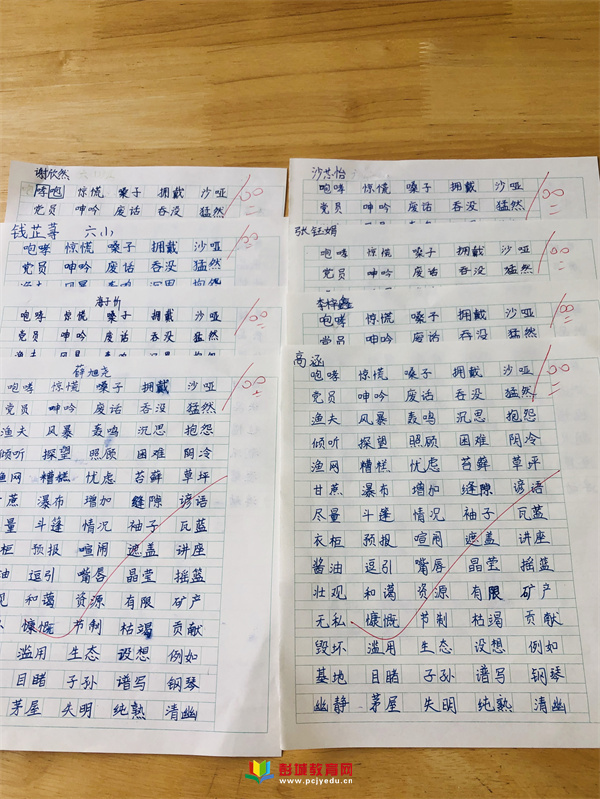 谢欣然
咆哮 惊慌 嗓子 拥戴 沙哑
党员 呻吟 废话 吞没 猛然
100
钱芷萼 六小
咆哮 惊慌 嗓子 拥戴 沙哑
党员 呻吟 废话 吞没 猛然
渔夫 风暴 轰鸣 沉思 抱怨
100
咆哮 惊慌 嗓子 拥戴 沙哑
党员 呻吟 废话 吞没 猛然
渔夫 风暴 轰鸣 沉思 抱怨
100
咆哮 惊慌 嗓子 拥戴 沙哑
党员 呻吟 废话 吞没 猛然
渔夫 风暴 轰鸣 沉思 抱怨
倾听 探望 照顾 困难 阴冷
渔网 糟糕 忧虑 苔藓 草坪
蔗 瀑布 增加 缝隙 谚语
量 斗篷 情况 袖子 瓦蓝
柜 预报 喧闹 遮盖 讲座
油 逗引 嘴唇 晶莹 摇篮
观 和蔼 资源 有限 矿产
慷慨 节制 枯竭 贡献
滥用 生态 设想 例如
目睹 子孙 谱写 钢琴
茅屋 失明 纯熟 清幽
100
沙芯怡
咆哮 惊慌 嗓子 拥戴 沙哑
党员 呻吟 废话 吞没 猛然
100
张钰娟
咆哮 惊慌 嗓子 拥戴 沙哑
党员 呻吟 废话 吞没 猛然
100
李梓鑫
咆哮 惊慌 嗓子 拥戴 沙哑
党员 呻吟 废话 吞没 猛然
100
高涵
咆哮 惊慌 嗓子 拥戴 沙哑
党员 呻吟 废话 吞没 猛然
渔夫 风暴 轰鸣 沉思 抱怨
倾听 探望 照顾 困难 阴冷
渔网 糟糕 忧虑 苔藓 草坪
甘蔗 瀑布 增加 缝隙 谚语
尽量 斗篷 情况 袖子 瓦蓝
衣柜 预报 喧闹 遮盖 讲座
酱油 逗引 嘴唇 晶莹 摇篮
壮观 和蔼 资源 有限 矿产
无私 慷慨 节制 枯竭 贡献
毁坏 滥用 生态 设想 例如
基地 目睹 子孙 谱写 钢琴
幽静 茅屋 失明 纯熟 清幽
100
彭城教育网
www.pcjyedu.cn